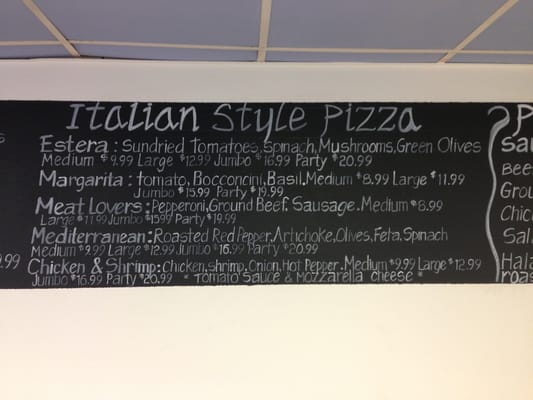 Italian Style Pizza
Estera: Sundried Tomatoes, Spinach, Mushrooms, Green Olives
Medium $9.99 Large $12.99 Jumbo $16.99 Party $20.99
Margarita: Tomato, Bocconcini, Basil, Medium $8.99 Large $11.99
Jumbo $15.99 Party $19.99
Meat Lovers: Pepperoni, Ground Beef, Sausage. Medium $8.99
Large $11.99 Jumbo $15.99 Party $19.99
Mediterranean: Roasted Red Pepper, Artichoke, Olives, Feta, Spinach
Medium $9.99 Large $12.99 Jumbo $16.99 Party $20.99
Chicken & Shrimp: Chicken, Shrimp, Onion, Hot Pepper. Medium $9.99 Large $12.99
Jumbo $16.99 Party $20.99 * Tomato Sauce & Mozzarella Cheese *
9.99
P
Sau
Bee
Grou
Chic
Sal
Hala
roas